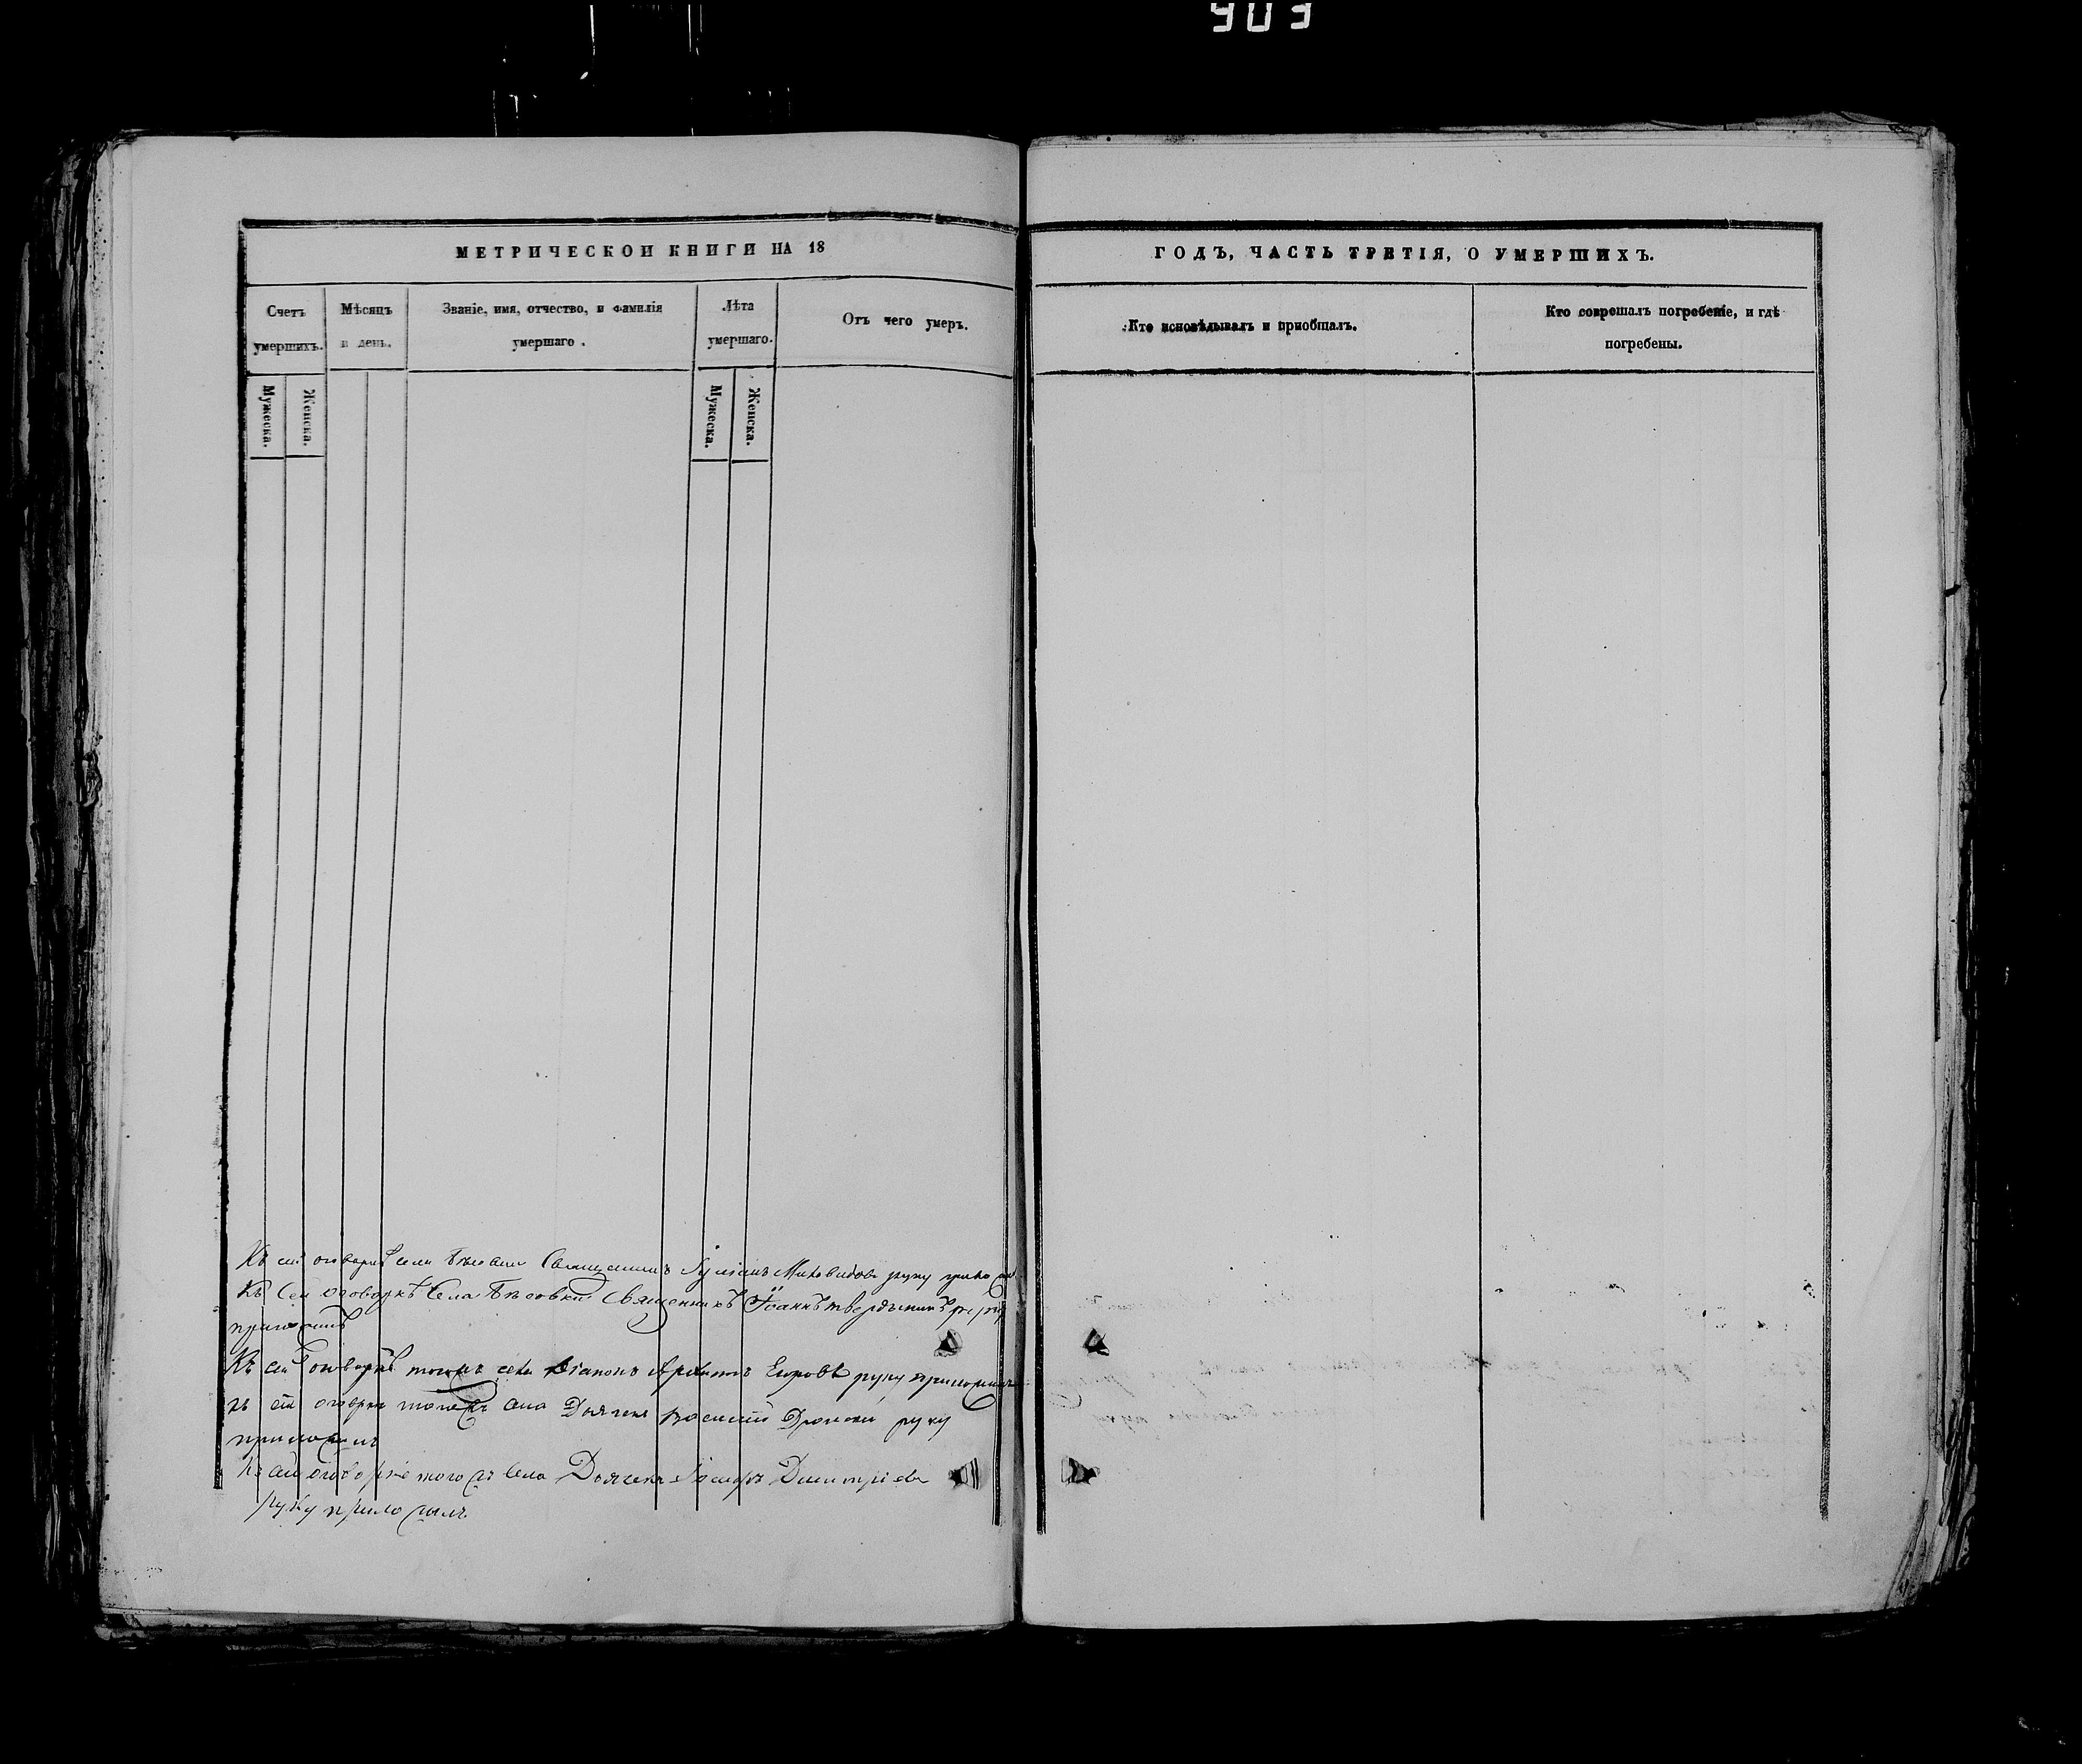 903
МЕТРИЧЕСКОИ КНИГИ НА 18
ГОДЪ, ЧАСТЬ ТРЕТІЯ, О УМЕРШИХЪ.
Счетъ умершихъ.
Мѣсяцъ и день.
Званіе, имя, отчество, и фамилія умершаго.
Лѣта умершаго.
Отъ чего умеръ.
Кто исповѣдывалъ и приобщалъ.
Кто соврешалъ погребеніе, и гдѣ погребены.
Мужеска.
Женска.
Мужеска.
Женска.
Къ сей оговоркѣ села Священникъ руку
Къ сей оговоркѣ села Священникъ Іоаннъ руку
приложилъ
Къ сей оговоркѣ тогожъ села Діаконъ руку приложилъ
къ сей тогожъ села Дьячекъ Василій руку
приложилъ
Къ сей оговорке тогожъ села Дьячекъ Димитріевъ
руку приложилъ